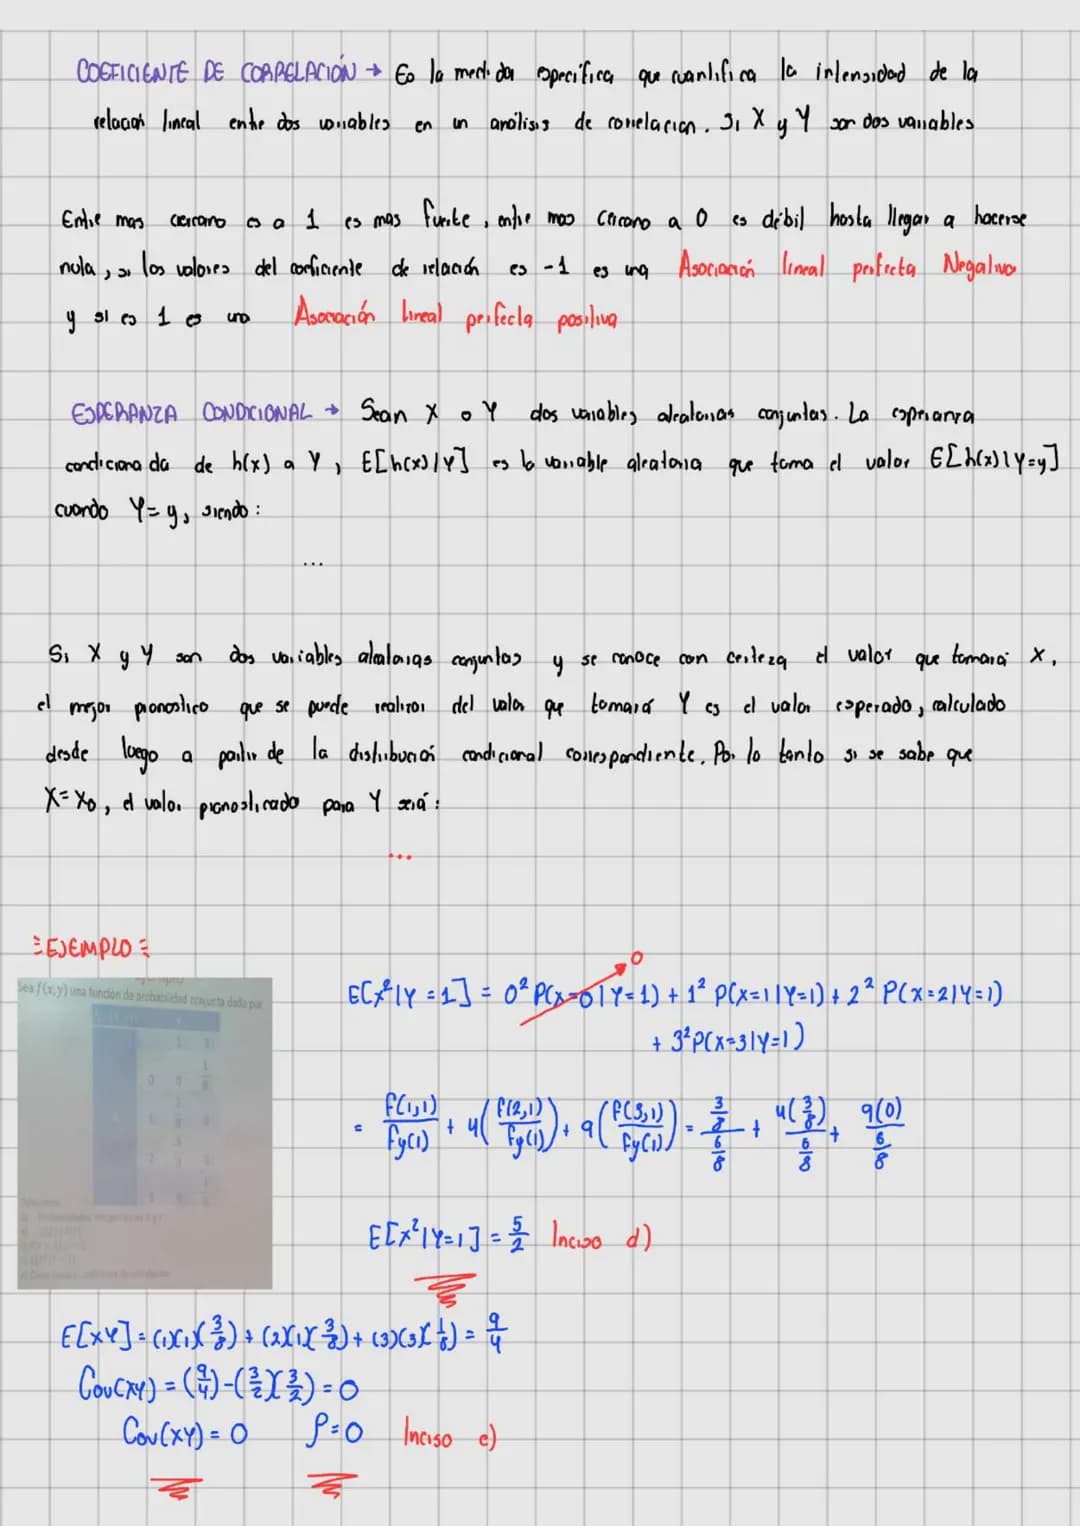 COEFICIENTE DE CORRELACIÓN → Es la medida especifica que cuantifica la intensidad de la
relación lineal entre dos variables en un análisis de correlacion. Si X y Y son dos variables
Entre mas cercano es a 1 es mas fuerte, entre mas cercano a 0 es débil hasta llegar a hacerse
nula, si los valores del coeficiente de relación es -1 es una Asociación lineal perfecta Negativa
y si es 1 es una Asociación lineal perfecta positiva
ESPERANZA CONDICIONAL → Sean X o Y dos variables aleatorias conjuntas. La esperanza
condicionada de h(x) a Y, E[h(x)|Y] es la variable aleatoria que toma el valor E[h(x)|Y=y]
cuando Y=y, siendo:
...
Si X y Y son dos variables aleatorias conjuntas y se conoce con certeza el valor que tomará X,
el mejor pronostico que se puede realizar del valor que tomará Y es el valor esperado, calculado
desde luego a partir de la distribución condicional correspondiente. Por lo tanto si se sabe que
X=X₀, el valor pronosticado para Y será:
...
EJEMPLO
Sea f(x,y) una función de probabilidad conjunta dada por
E[x²|Y=1] = 0² P(x=0|Y=1) + 1² P(x=1|Y=1) + 2² P(x=2|Y=1)
0
+ 3² P(x=3|Y=1)
= f(1,1)/fy(1) + 4(f(2,1)/fy(1)) + 9(f(3,1)/fy(1)) = 3/8/6/8 + 4(3/8)/6/8 + 9(0)/6/8
E[x²|Y=1] = 5/2 Inciso d)
E[XY] = (1)(1)(3/8) + (2)(1)(3/8) + (3)(3)(1/8) = 9/4
Cov(XY) = (9/4) - (3/2)(3/2) = 0
Cov(XY) = 0 ρ=0 Inciso e)